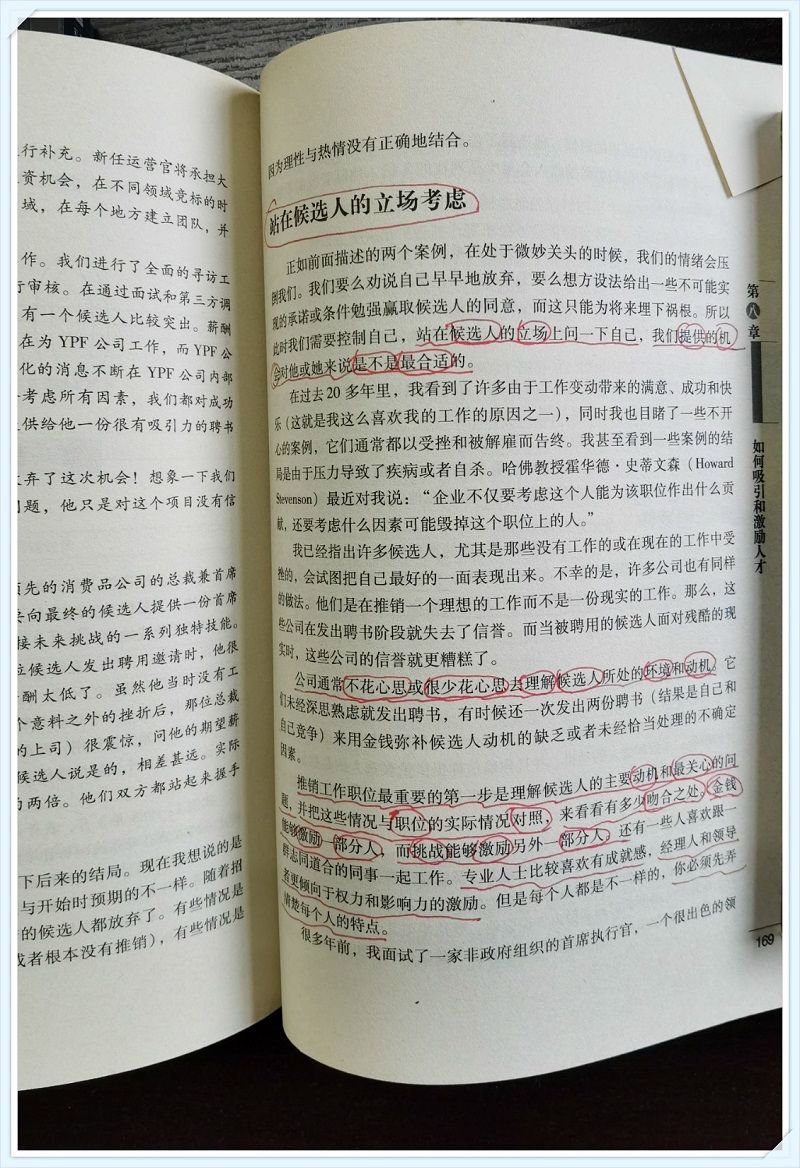 行补充。新任运营官将承担大
资机会，在不同领域竞标的时
域，在每个地方建立团队，并
作。我们进行了全面的寻访工
行审核。在通过面试和第三方调
有一个候选人比较突出。薪酬
在为 YPF 公司工作，而 YPF 公
化的消息不断在 YPF 公司内部
考虑所有因素，我们都对成功
供给他一份很有吸引力的聘书
弃了这次机会！想象一下我们
问题，他只是对这个项目没有信
领先的消费品公司的总裁兼首席
要向最终的候选人提供一份首席
接未来挑战的一系列独特技能。
位候选人发出聘用邀请时，他很
酬太低了。虽然他当时没有工
个意料之外的挫折后，那位总裁
的上司）很震惊，问他的期望薪
候选人说是的，相差甚远。实际
的两倍。他们双方都站起来握手
下后来的结局。现在我想说的是
与开始时预期的不一样。随着招
的候选人都放弃了。有些情况是
或者根本没有推销），有些情况是
因为理性与热情没有正确地结合。
站在候选人的立场考虑
正如前面描述的两个案例，在处于微妙关头的时候，我们的情绪会压
倒我们。我们要么劝说自己早早地放弃，要么想方设法给出一些不可能实
现的承诺或条件勉强赢取候选人的同意，而这只能为将来埋下祸根。所以
此时我们需要控制自己，站在候选人的立场上问一下自己，我们提供的机
会对他或她来说是不是最合适的。
在过去 20 多年里，我看到了许多由于工作变动带来的满意、成功和快
乐（这就是我这么喜欢我的工作的原因之一），同时我也目睹了一些不开
心的案例，它们通常都以受挫和被解雇而告终。我甚至看到一些案例的结
局是由于压力导致了疾病或者自杀。哈佛教授霍华德·史蒂文森（Howard
Stevenson）最近对我说：“企业不仅要考虑这个人能为该职位作出什么贡
献，还要考虑什么因素可能毁掉这个职位上的人。”
我已经指出许多候选人，尤其是那些没有工作的或在现在的工作中受
挫的，会试图把自己最好的一面表现出来。不幸的是，许多公司也有同样
的做法。他们是在推销一个理想的工作而不是一份现实的工作。那么，这
些公司在发出聘书阶段就失去了信誉。而当被聘用的候选人面对残酷的现
实时，这些公司的信誉就更糟糕了。
公司通常不花心思或很少花心思去理解候选人所处的环境和动机。它
们未经深思熟虑就发出聘书，有时候还一次发出两份聘书（结果是自己和
自己竞争）来用金钱弥补候选人动机的缺乏或者未经恰当处理的不确定
因素。
推销工作职位最重要的第一步是理解候选人的主要动机和最关心的问
题，并把这些情况与职位的实际情况对照，来看看有多少吻合之处。金钱
能够激励一部分人，而挑战能够激励另外一部分人，还有一些人喜欢跟一
群志同道合的同事一起工作。专业人士比较喜欢有成就感，经理人和领导
者更倾向于权力和影响力的激励。但是每个人都是不一样的，你必须先弄
清楚每个人的特点。
很多年前，我面试了一家非政府组织的首席执行官，一个很出色的领
第八章
如何吸引和激励人才
169